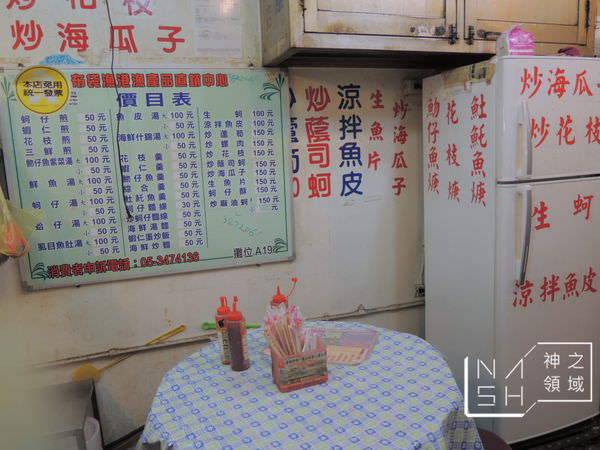 炒花枝
炒海瓜子
本店免用
統一發票
布袋漁港漁產品直銷中心
價目表
蚵仔煎 50元
蝦仁煎 50元
花枝煎 50元
三鮮煎 50元
魩仔魚紫菜湯 大100元
小50元
鮮魚湯 大100元
小50元
蚵仔湯 大100元
小50元
蛤仔湯 大100元
小50元
虱目魚肚湯 大100元
小50元
魚皮湯 大100元
小50元
海鮮什錦湯 大100元
小50元
花枝羹 50元
蝦仁羹 50元
魩仔魚羹 50元
綜合羹 50元
𩵚魠魚羹 50元
蚵仔麵線 30元
炒蚵仔麵線 50元
海鮮湯麵 50元
蝦仁蛋炒飯 50元
海鮮炒麵 50元
生蚵 100元
涼拌魚皮 100元
炒蘆筍 100元
炒螺肉 150元
炒花枝 150元
炒蔭司蚵 100元
炒海瓜子 100元
生魚片 100元
生魚肚 150元
炒麻油蚵 100元
消費者申訴電話：05-3474138
攤位.A19
炒蘆筍
炒蔭司蚵
涼拌魚皮
生魚片
炒海瓜子
魩仔魚焿
花枝焿
魠魚焿
炒海瓜子
炒花枝
生蚵
涼拌魚皮
NASH
神之
領域